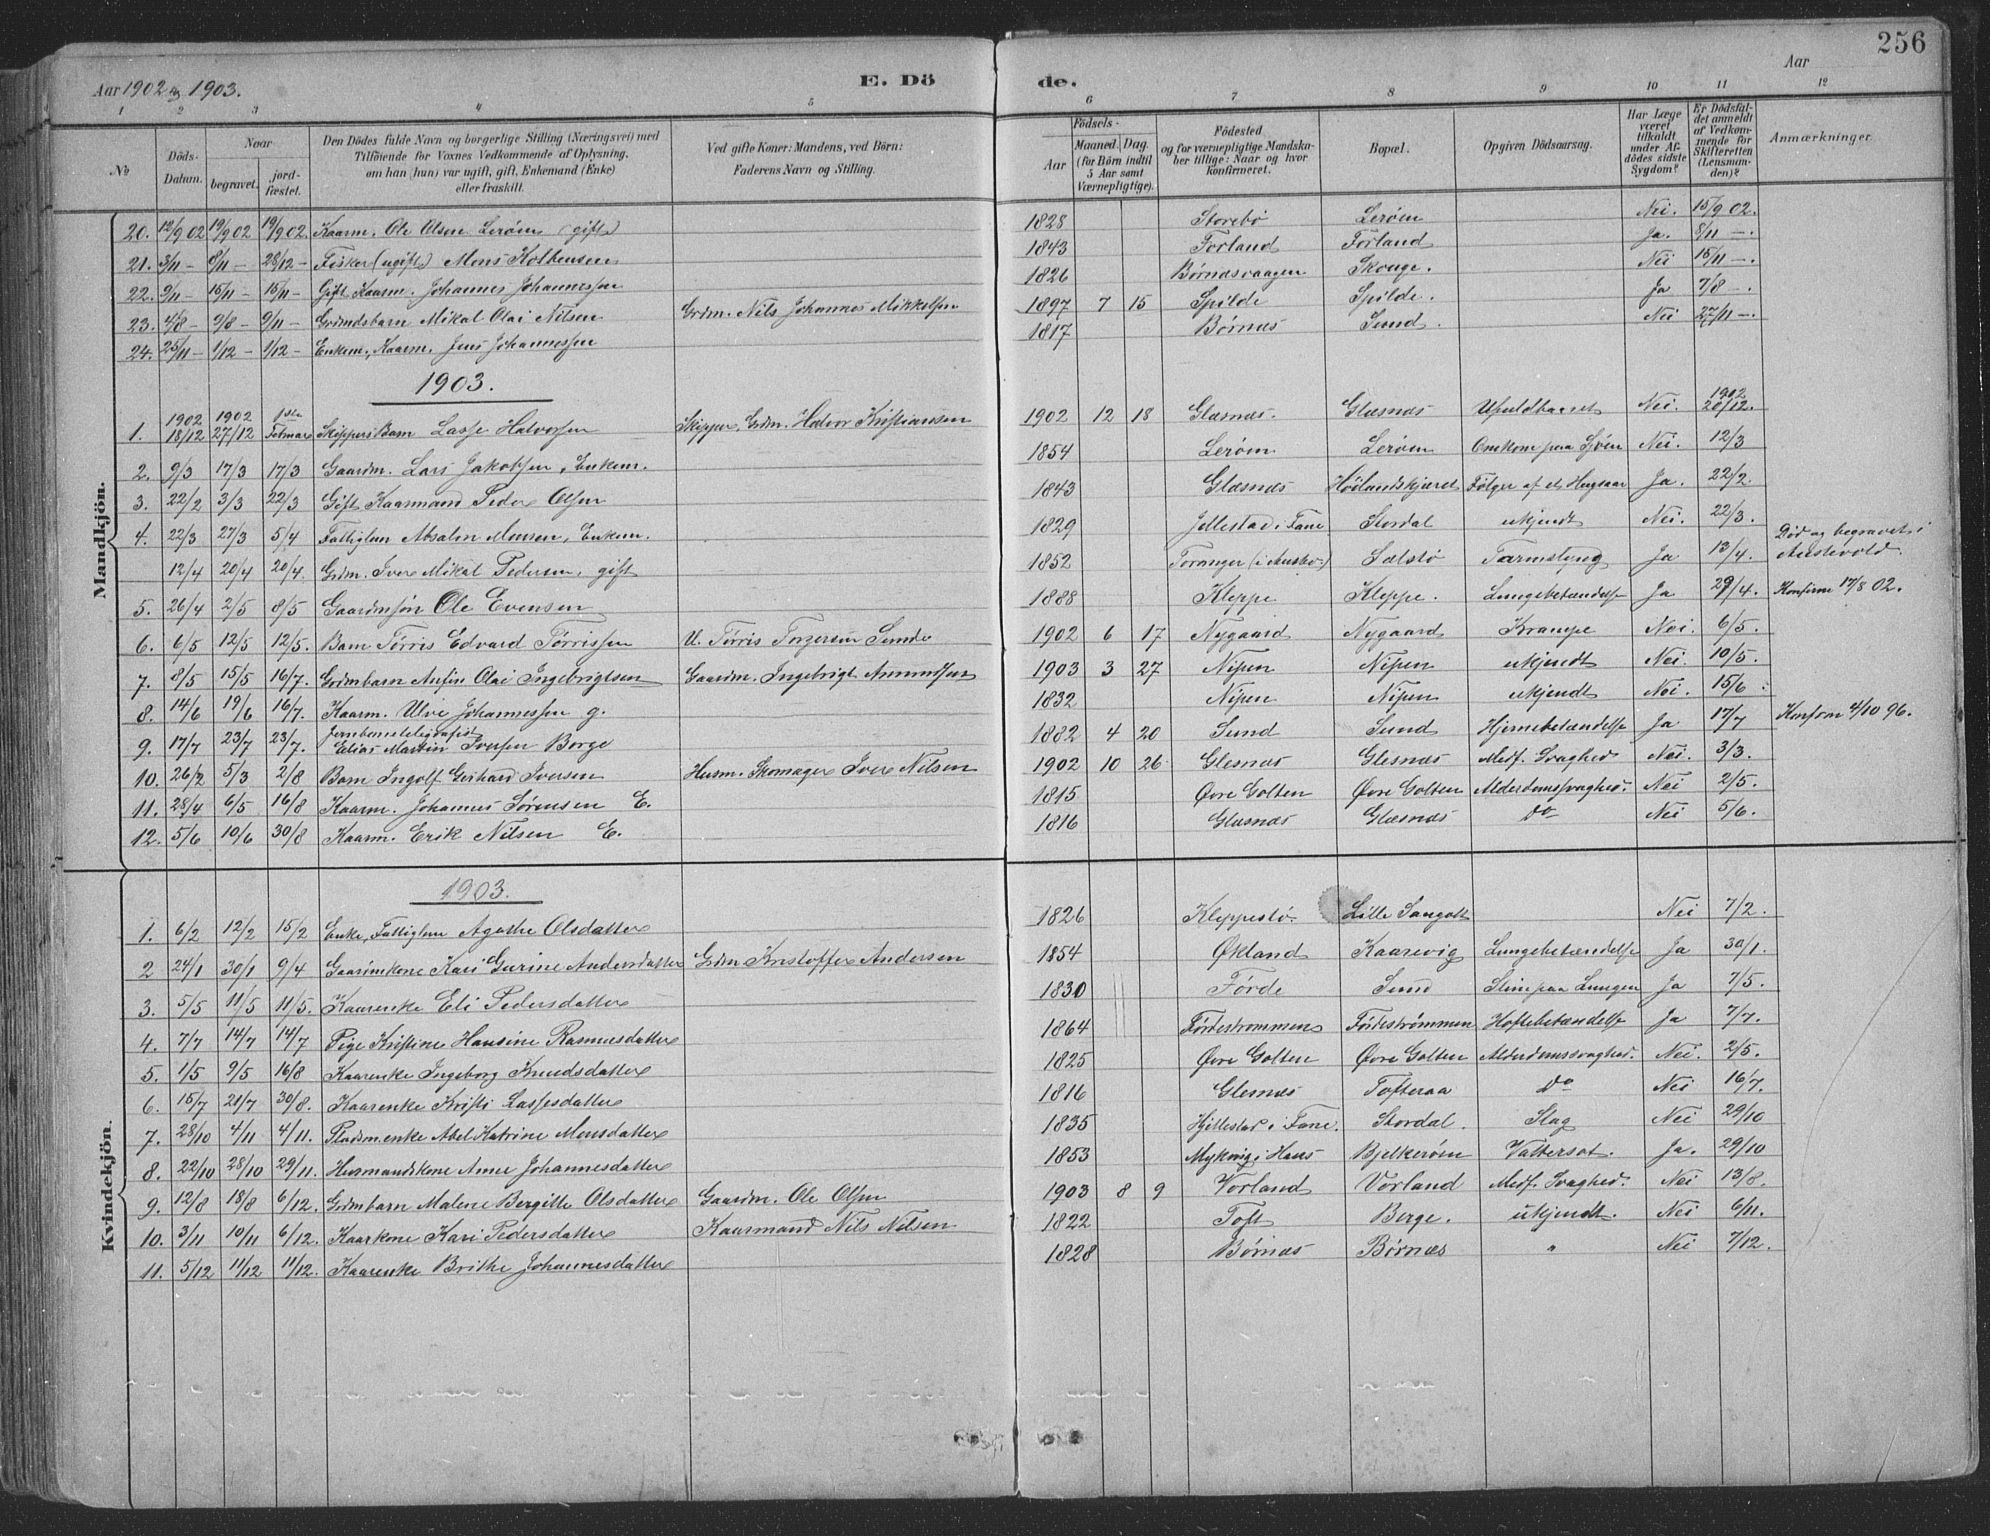 256
Aar 1902 og 1903.
E. Döde.
Aar
1 2 3 4 5 6 7 8 9 10 11 12
No
Döds-Datum.
Naar
begravet.
jordfæstet.
Den Dödes fulde Navn og borgerlige Stilling (Næringsvei) med
Tilföiende for Voxnes Vedkommende af Oplysning,
om han (hun) var ugift, gift, Enkemand (Enke)
eller fraskilt.
Ved gifte Koner: Mandens, ved Börn:
Faderens Navn og Stilling.
Födsels-
Aar
Maaned. Dag.
(for Börn indtil
5 Aar samt
Værnepligtige).
Födested
og for værnepligtige Mandska-
ber tillige: Naar og hvor
konfirmeret.
Bopæl.
Opgiven Dödsaarsag.
Har Læge
været
tilkaldt
under Af-
dödes sidste
Sygdom?
Er Dödsfal-
det anmeldt
af Vedkom-
mende for
Skifteretten
(Lensman-
den)?
Anmærkninger.
Mandkjön.
20. 12/9 02 19/9 02 19/9 02. Kaarm. Ole Olsen Lerøen (gift) 1828 Storebø Lerøen Nei. 15/9 02.
21. 3/11 – 8/11 – 28/12 – Fisker (ugift) Mons Kolbensen 1843 Forland Forland Ja. 8/11 –.
22. 9/11 – 15/11 – 15/11 – Gift Kaarm. Johannes Johannessen 1826 Børnæsvaagen Skouge. Nei 15/11 –.
23. 4/8 – 9/8 – 9/11 – Grdmdsbarn Mikal Olai Nilsen Grdm. Nils Johannes Mikkelsen 1897 7 15 Spilde Spilde. Ja 7/8 –.
24. 25/11 – 1/12 – 1/12 – Enkem. Kaarm. Jens Johannessen 1817 Børnæs Sund. Nei 27/11 –.
1903.
1. 1902 18/12 1902 27/12 1ste Februar Skippers Barn Lasse Halvorsen Skipper, Grdm. Halvor Kristiansen 1902 12 18 Glæsnæs. Glæsnæs Ufuldbaaret Nei. 1902 20/12.
2. 9/3 17/3 17/3 Gaardm. Lars Jakobsen, Enkem. 1854 Lerøen Lerøen Omkom paa Sjøen Nei. 12/3
3. 22/2 3/3 22/3 Gift Kaarmand Peder Olsen 1843 Glæsnæs Høilandskjæret Følger af et Hugsaar Ja. 22/2.
4. 22/3 27/3 5/4 Fattiglem Absalon Monsen, Enkem. 1829 Jellestad i Fane Stordal ukjendt Nei. 22/3.
12/4 20/4 20/4. Grdm. Iver Mikal Pedersen, gift 1852 Toranger (i Austev.) Sælstø Tarmslyng Ja 13/4. Død og begravet i Austevold.
5. 26/4 2/5 8/5 Gaardmsøn Ole Evensen 1888 Kleppe Kleppe. Lungebetændelse Ja 29/4. Konfirm 17/8 02.
6. 6/5 12/5 12/5. Barn Tørris Edvard Tørrissen U. Tørris Torgersen Sunde 1902 6 17 Nygaard Nygaard Krampe Nei. 6/5.
7. 8/5 15/5 16/7. Grdmbarn Anfin Olai Ingebrigtsen Gaardm. Ingebrigt Amundsen 1903 3 27 Nipen Nipen ukjendt Nei. 10/5.
8. 14/6 19/6 16/7. Kaarm. Ulve Johannessen g. 1832 Nipen Nipen ukjendt Nei. 15/6.
9. 17/7 23/7 23/7. Jernbanetelegrafist Elias Martin Iversen Borge 1882 4 20 Sund Sund Hjernebetændelse Ja 17/7 Konfirm 4/10 96.
10. 26/2 5/3 2/8 Barn Ingolf Gerhard Iversen Husm. Skomager Iver Nilsen 1902 10 26 Glesnæs Glesnæs Medf. Svaghed Nei. 3/3.
11. 28/4 6/5 16/8 Kaarm. Johannes Sørensen E. 1815 Øvre Golten Øvre Golten Alderdomssvaghed. Nei 2/5.
12. 5/6 10/6 30/8 Kaarm. Erik Nilsen E. 1816 Glæsnæs Glæsnæs Do Nei 5/6.
Kvindekjön.
1903.
1. 6/2 12/2 15/2 Enke, Fattiglem Agathe Olsdatter 1826 Kleppestø. Lille Sangolt Nei 7/2.
2 24/1 30/1 9/4 Gaardmkone Kari Gurine Andersdatter Grdm Kristoffer Andersen 1854 Økland Kaarevig Lungebetændelse Ja 30/1.
3. 5/5 11/5 11/5. Kaarenke Eli Pedersdatter 1830 Førde Sund Slim paa Lungen Ja 7/5.
4. 7/7 14/7 14/7 Pige Kristine Hansine Rasmusdatter 1864 Førdestrømmen Førdestrømmen Hoftebetændelse Ja 7/7.
5. 1/5 9/5 16/8 Kaarenke Ingeborg Knudsdatter 1825 Øvre Golten Øvre Golten Alderdomssvaghed. Nei. 2/5.
6. 15/7 21/7 30/8. Kaarenke Kristi Lassesdatter 1816 Glesnæs Tofteraa Do Nei 16/7.
7. 28/10 4/11 4/11. Pladsmenke Abel Katrine Monsdatter 1835 Hjillestad i Fane. Stordal. Slag Nei 29/10
8. 22/10 28/10 29/11. Husmandskone Anne Johannesdatter 1853 Myking i Haus Bjelkerøen Vattersot. Ja. 29/10
9. 12/8 18/8 6/12. Grdmbarn Malene Bergitte Olsdatter Gaardm. Ole Olsen 1903 8 9 Vorland Vorland Medf. Svaghed. Nei 13/8.
10. 3/11 10/11 6/12. Kaarkone Kari Pedersdatter Kaarmand Nils Nilsen 1822 Toft Berge. ukjendt. Nei 6/11.
11. 5/12 11/12 11/12. Kaarenke Brithe Johannesdatter 1828 Børnæs Børnæs " Nei 7/12.